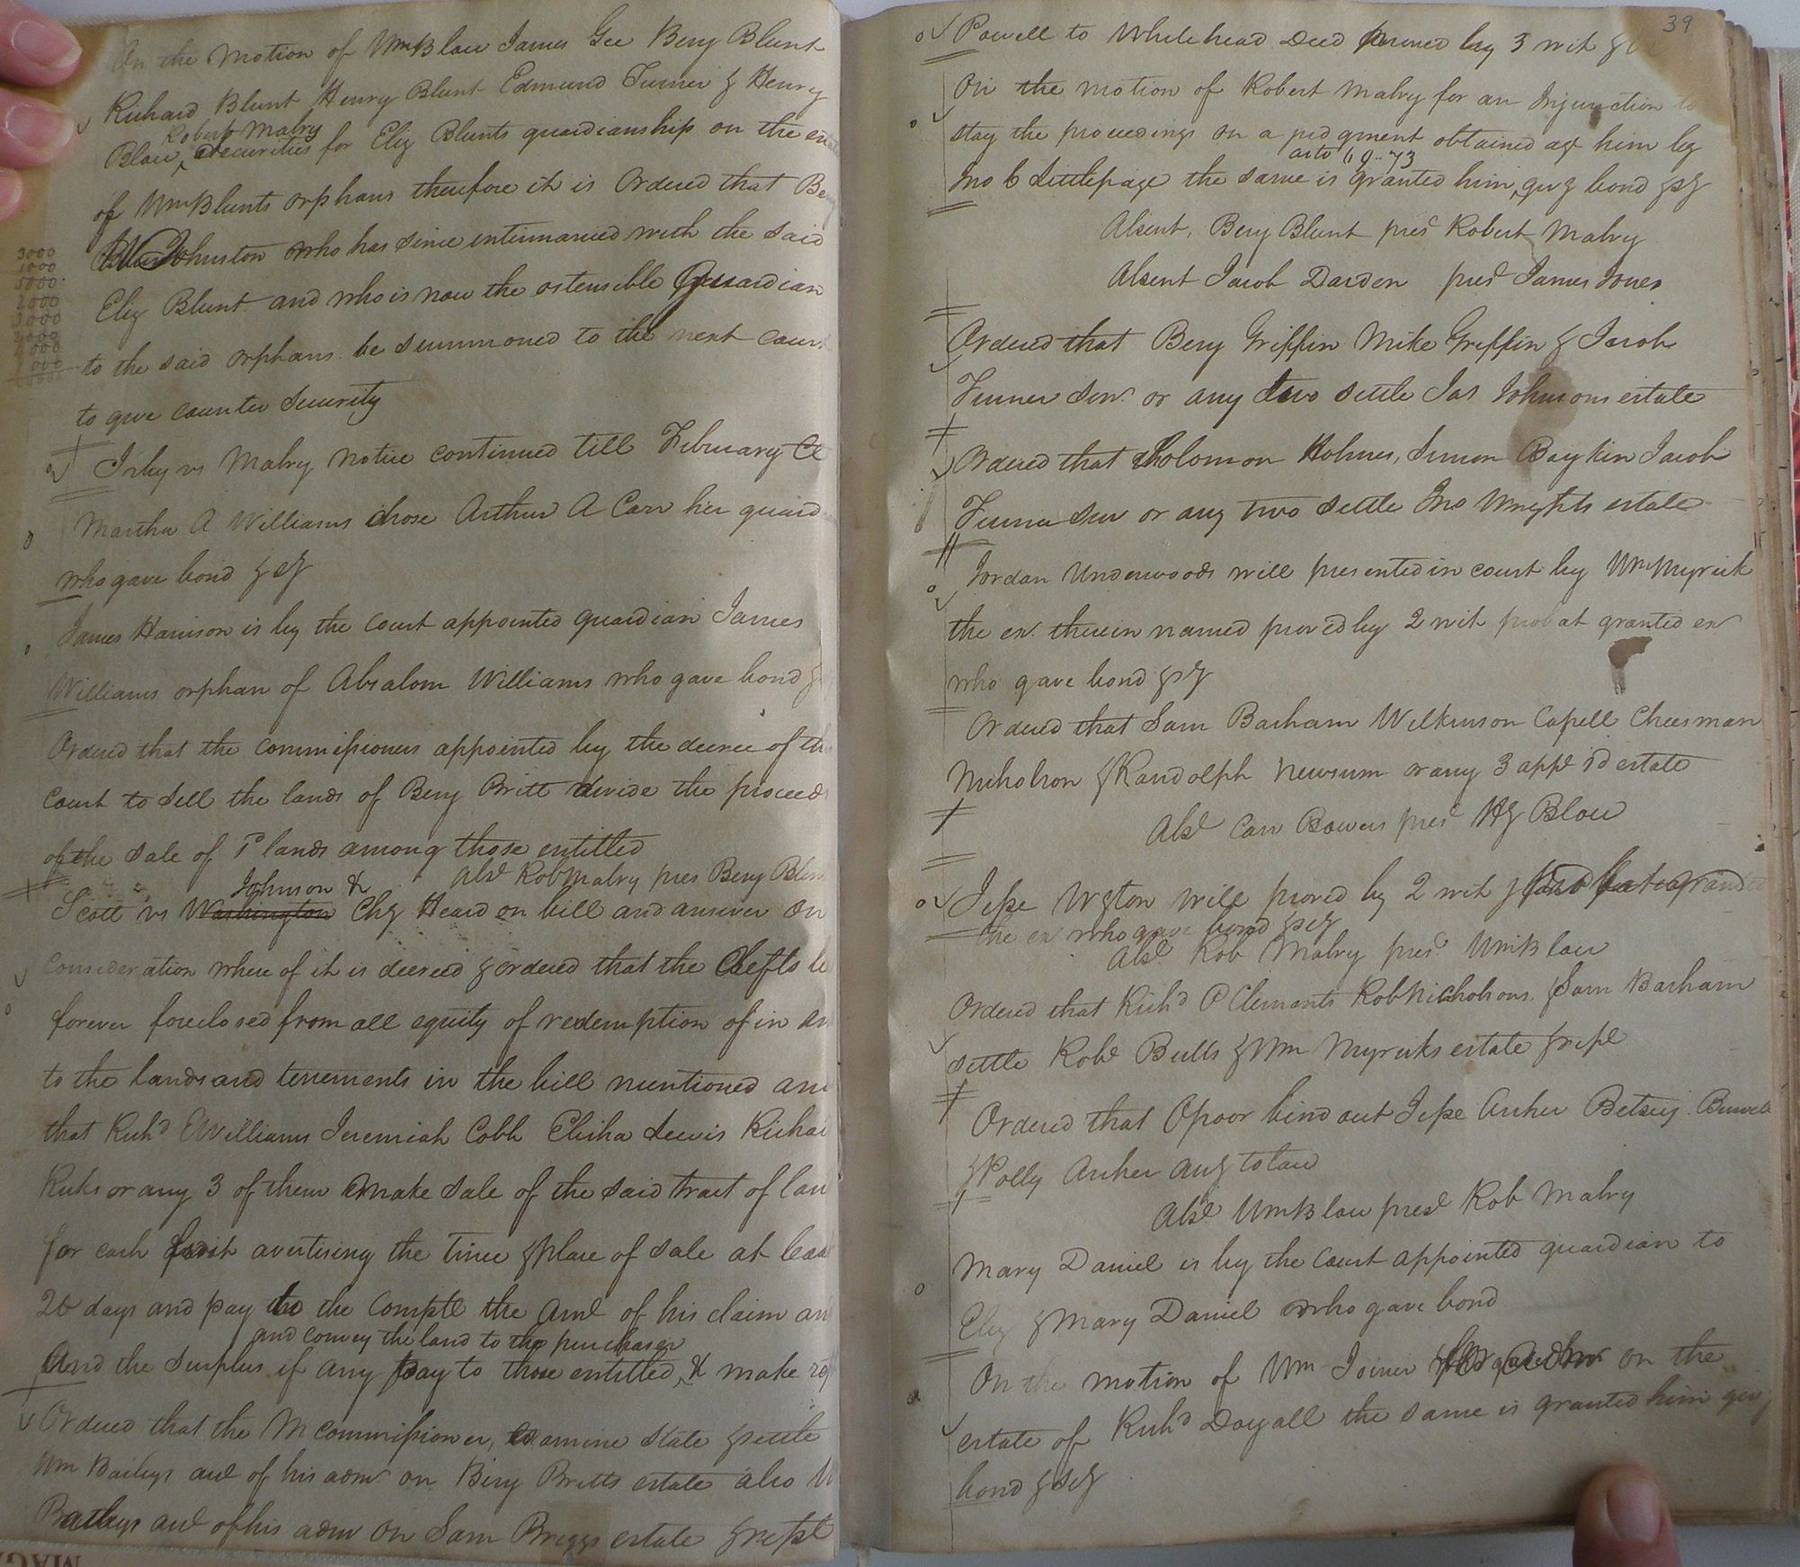 On the motion of Wm Blow James Gee Benj Blunt
Richard Blunt Henry Blunt Edmund Turner & Henry
Robert Mabry
Blow, securities for Eliz Blunts guardianship on the
of Wm Blunts orphans therefore it is Ordered that
Johnston who has since intermarried with the said
Eliz Blunt and who is now the ostensible Guardian
to the said orphans be summoned to the next court
to give counter security
Irby vs Mabry notice continued till February
Martha A Williams chose Arthur A Carr her guard
who gave bond &c
James Harrison is by the court appointed guardian James
Williams orphan of Absalom Williams who gave bond &
Ordered that the commissioners appointed by the decree of th
Court to sell the lands of Benj Britt devide the proceeds
of the sale of sd lands among those entitled
Absd Rob Mabry pres Benj Blunt
Johnson &
Scott vs Washington Chy Heard on bill and answer On
Consideration where of it is decreed & ordered that the Defts be
forever foreclosed from all equity of redemption of in an
to the lands and tenements in the bill mentioned and
that Richd E Williams Jeremiah Cobb Elisha Lewis Richar
Ricks or any 3 of them make sale of the said tract of lan
for cash first avertising the time & place of sale at leas
20 days and pay to the Complt the amt of his claim an
and convey the land to the purchaser
And the surplus if any pay to those entitled, & make re
Ordered that the M commissioner, examine state & settle
Wm Baileys act of his admr on Benj Britts estate also
Baileys act of his admr on Sam Briggs estate & rept
3000
1000
5000
2000
3000
39
Powell to Whitehead Deed proved by 3 wit
On the motion of Robert Mabry for an Injunction to
stay the proceedings on a judgment obtained agt him by
as to 69-73
Jno C Littlepage the same is granted him, givg bond &c
Absent, Benj Blunt pres Robert Mabry
Absent Jacob Darden presd James Jones
Ordered that Benj Griffin Mike Griffin & Jacob
Turner Senr or any two settle Jas Johnsons estate
Ordered that Solomon Holmes, Simon Boykin Jacob
Turner Senr or any two settle Jno Wrights estate
Jordan Underwoods will presented in court by Wm Myrick
the exr therein named proved by 2 wit probat granted exr
who gave bond &c
Ordered that Sam Barham Wilkinson Capell Cheesman
Nicholson & Randolph Newsum or any 3 appe sd estate
Absd Carr Bowers presd Hy Blow
Jesse will proved by 2 wit granted
the exr who gave bond &c
Absd Rob Mabry presd Wm Blow
Ordered that Richd P Clements Rob Nicholsons & Sam Barham
settle Robt Butts & Wm Myricks estate & rept
Ordered that O poor bind out Jesse Archer Betsey
& Polly Archer acg to law
Absd Wm Blow presd Rob Mabry
Mary Daniel is by the Court appointed guardian to
Eliz & Mary Daniel who gave bond
On the motion of Wm Joiner for admr on the
estate of Richd Doyall the same is granted him giv
bond &c